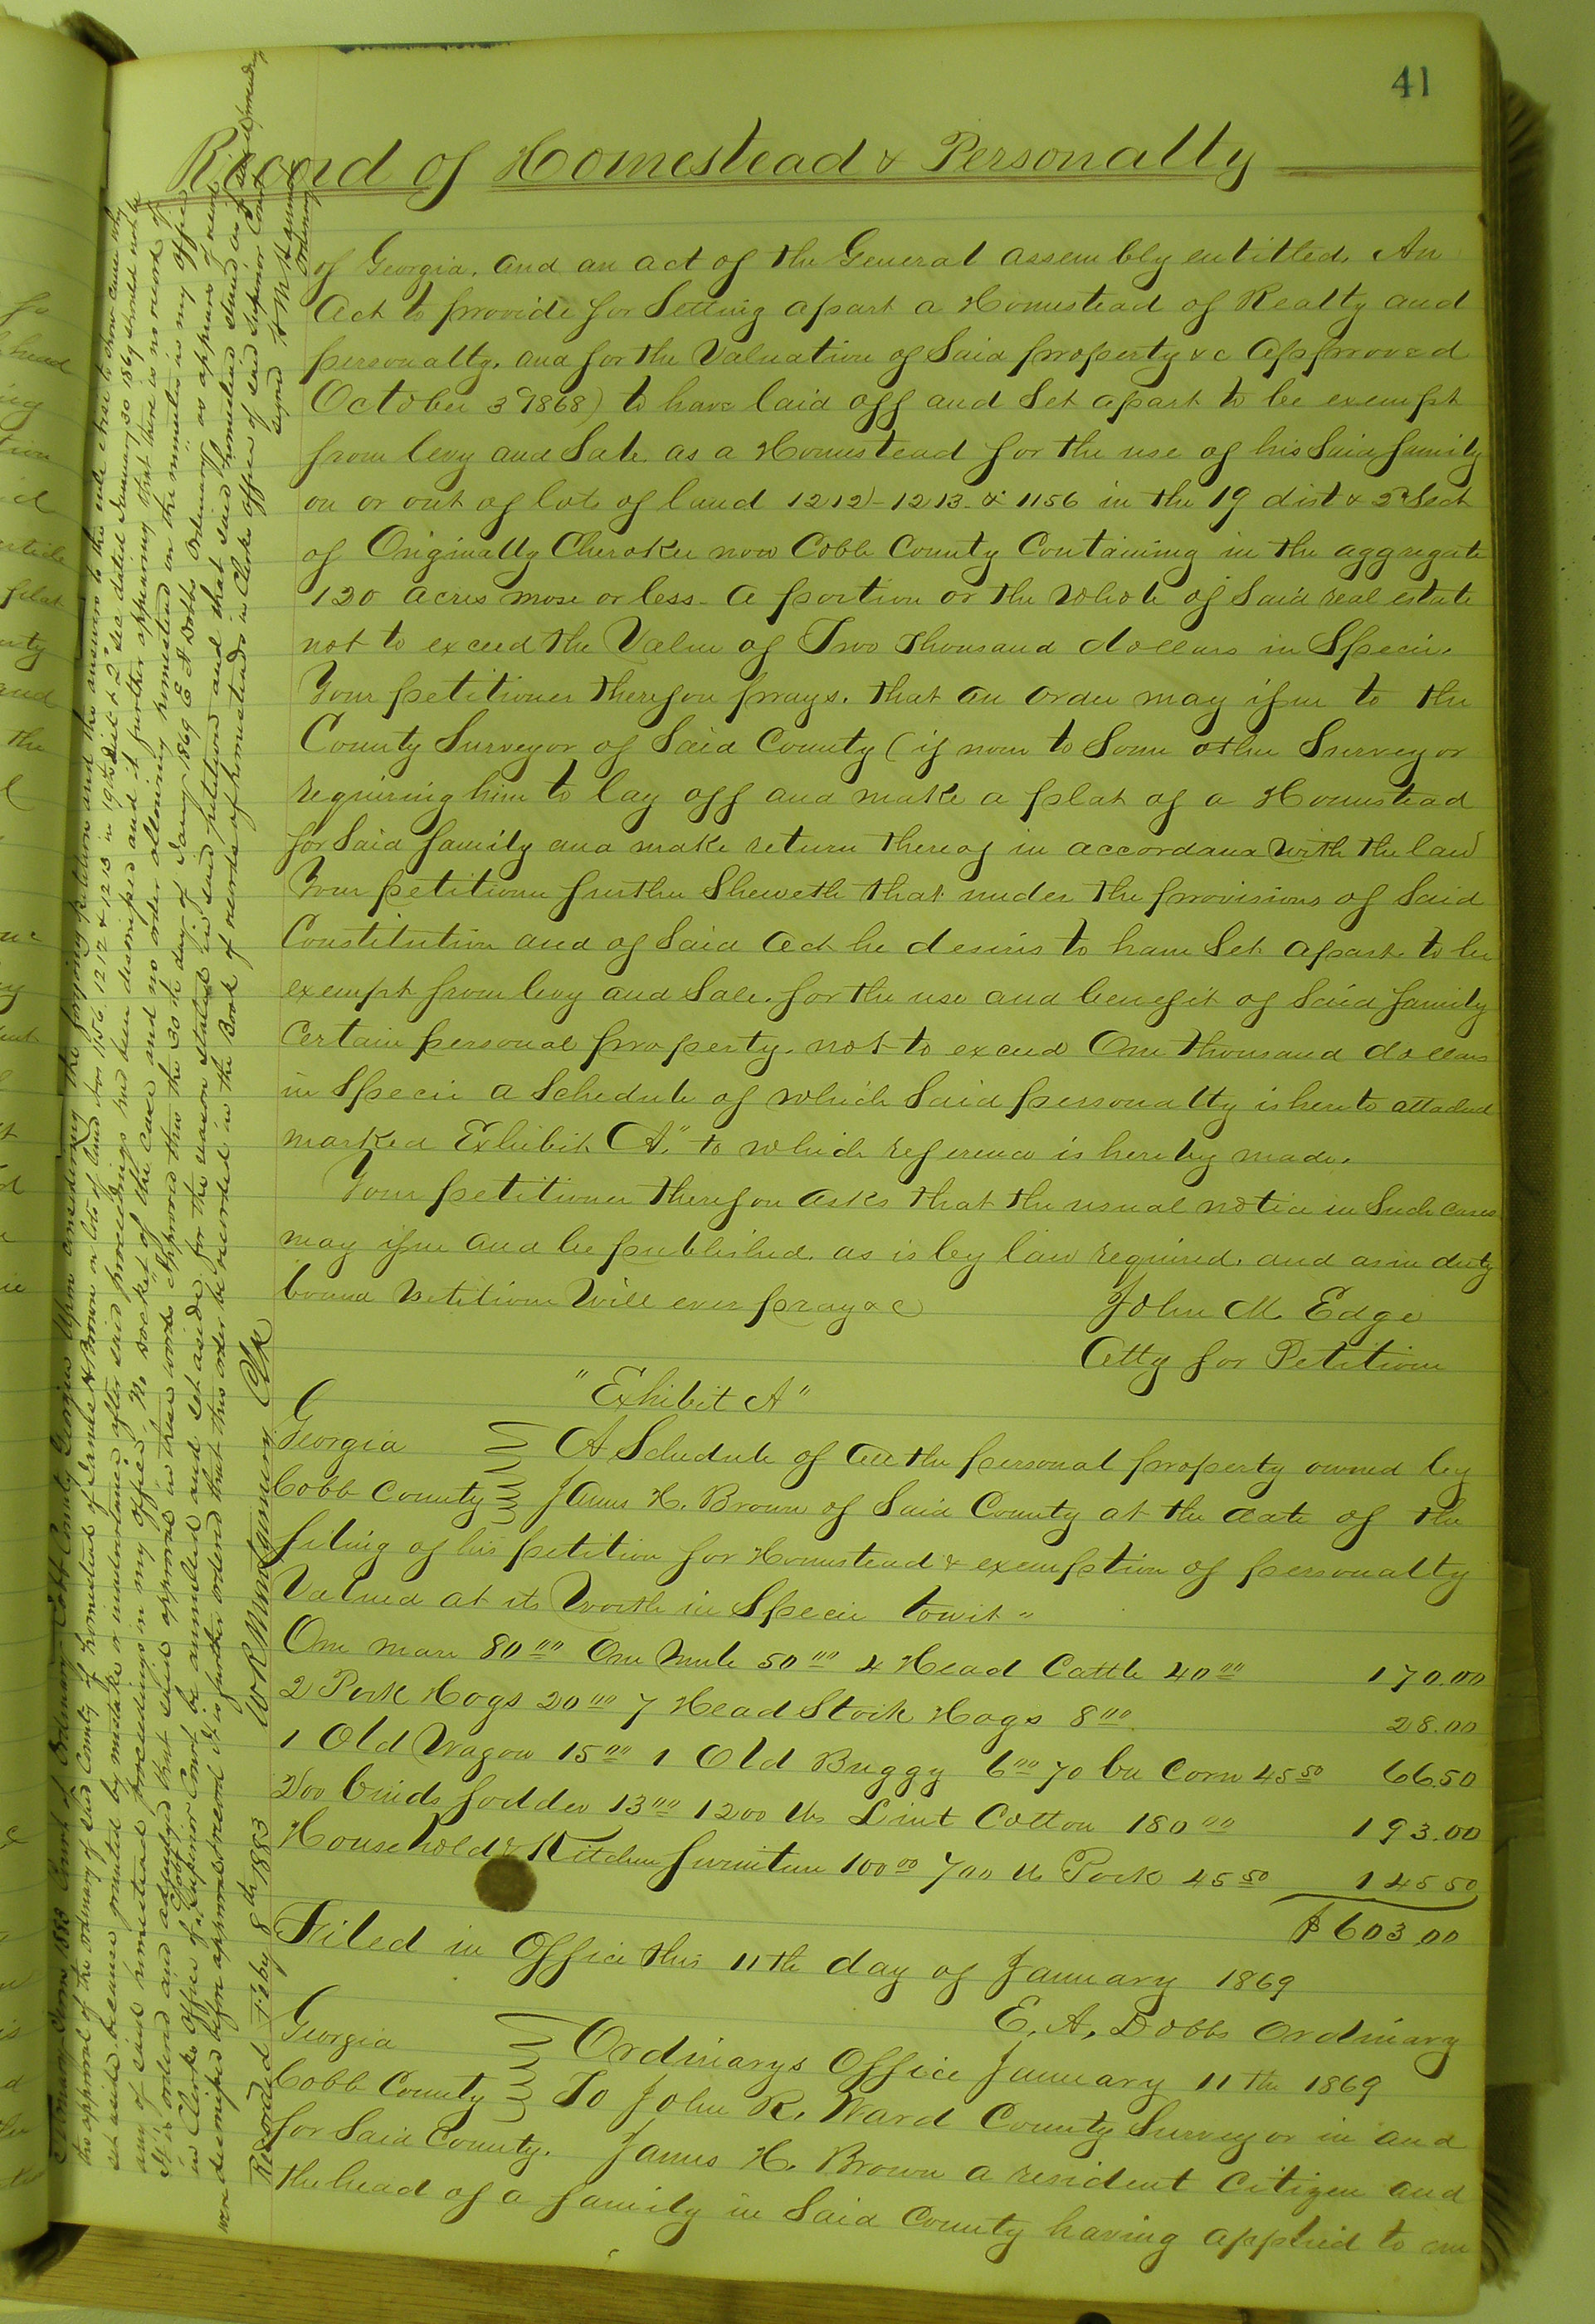 41
Record of Homestead & Personalty
of Georgia. and an act of the General assembly entitled. An
Act to provide for Setting apart a Homestead of Realty and
personalty. and for the Valuation of Said property &c Approved
October 3 1868) to have laid off and Set apart to be exempt
from levy and Sale. as a Homestead for the use of his Said family
on or out of lots of land 1212 - 1213. & 1156 in the 19 dist & 2d Sect
of Originally Cherokee now Cobb County Containing in the aggregate
120 acres more or less - a portion or the whole of Said real estate
not to exceed the Value of Two thousand dollars in Specie.
Your petitioner therefore prays. that an order may issue to the
County Surveyor of Said County (if none to Some other Surveyor
requiring him to lay off and make a plat of a Homestead
for Said family and make return thereof in accordance with the law
Your petitioner further Sheweth that under the provisions of Said
Constitution and of Said Act he desires to have Set apart to be
exempt from levy and Sale. for the use and benefit of Said family
Certain personal property. not to exceed One thousand dollars
in Specie a Schedule of which Said personalty is hereto attached
marked Exhibit "A." to which reference is hereby made.
Your petitioner therefore asks that the usual notice in Such cases
may issue and be published. as is by law required. and as in duty
bound petitioner will ever pray &c John M. Edge
Atty for Petitioner
"Exhibit A"
Georgia A Schedule of all the personal property owned by
Cobb County James H. Brown of Said County at the date of the
filing of his petition for Homestead & exemption of personalty
Valued at its Worth in Specie towit "
One mare 80 00 One Mule 50 00 4 Head Cattle 40 00 170.00
2 Pork Hogs 20 00 7 Head Stock Hogs 8 00 28.00
1 Old Wagon 15 00 1 Old Buggy 6 00 70 bu Corn 45 50 66 50
200 binds fodder 13 00 1200 lbs Lint Cotton 180 00 193.00
Household & Kitchen furniture 100 00 700 lb Pork 45 50 145 50
$603.00
Filed in Office this 11th day of January 1869
E. A. Dobbs Ordinary
Georgia Ordinarys Office January 11th 1869
Cobb County To John R. Ward County Surveyor in and
for Said County. James H. Brown a resident Citizen and
the head of a family in Said County having applied to me
January Term 1883 Court of Ordinary Cobb County Georgia Upon considering the foregoing petition and the answer to the rule nisi to show cause why
the approval of the ordinary of said County of homestead of James H Brown on lots of land Nos 1156. 1212 & 1213 in 19th Dist & 2d Sec dated January 30 1869 should not be
set aside because granted by mistake or inadvertance after said proceedings had been dismissed and it further appearing that there is no record of
any of said homestead proceedings in my office, no docket of the case and no order allowing homestead on the minutes in my office
It is ordered and adjudged that said approval in these words "Approved this the 30th day of Jany 1869 E A Dobbs Ordinary" as appears of record
in Clerks Office of Superior Court be annulled and set aside for the reason stated in said petition and that said homestead stand as if
were dismissed before approval & record It is further ordered that this order be recorded in the Book of records of homesteads in Clerks office of said Superior Court
signed
Ordinary
Recorded Feby 8th 1883 W R Montgomery Clk